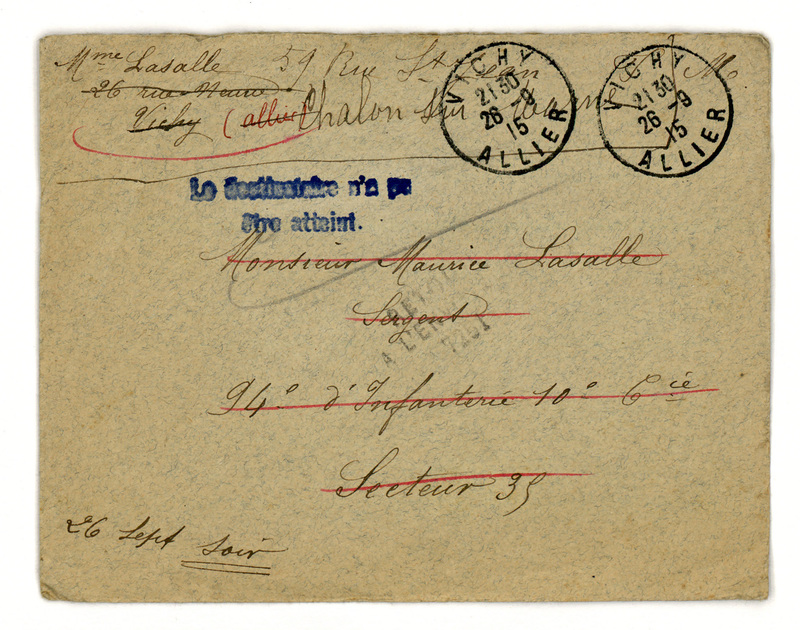 Mme Lasalle 59 Rue St Jean
26 rue
Vichy (allier) Chalon sur Saone
VICHY
21 30
26 - 9
15
ALLIER
VICHY
21 30
26 - 9
15
ALLIER
Le destinataire n'a pu
être atteint.
Monsieur Maurice Lasalle
RETOUR
A L'EN
Sergent
94e d'Infanterie 10e Cie
Secteur 35
26 Sept soir